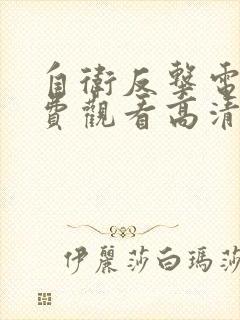 自衛反擊電
費觀看高清
伊麗莎白瑪莎